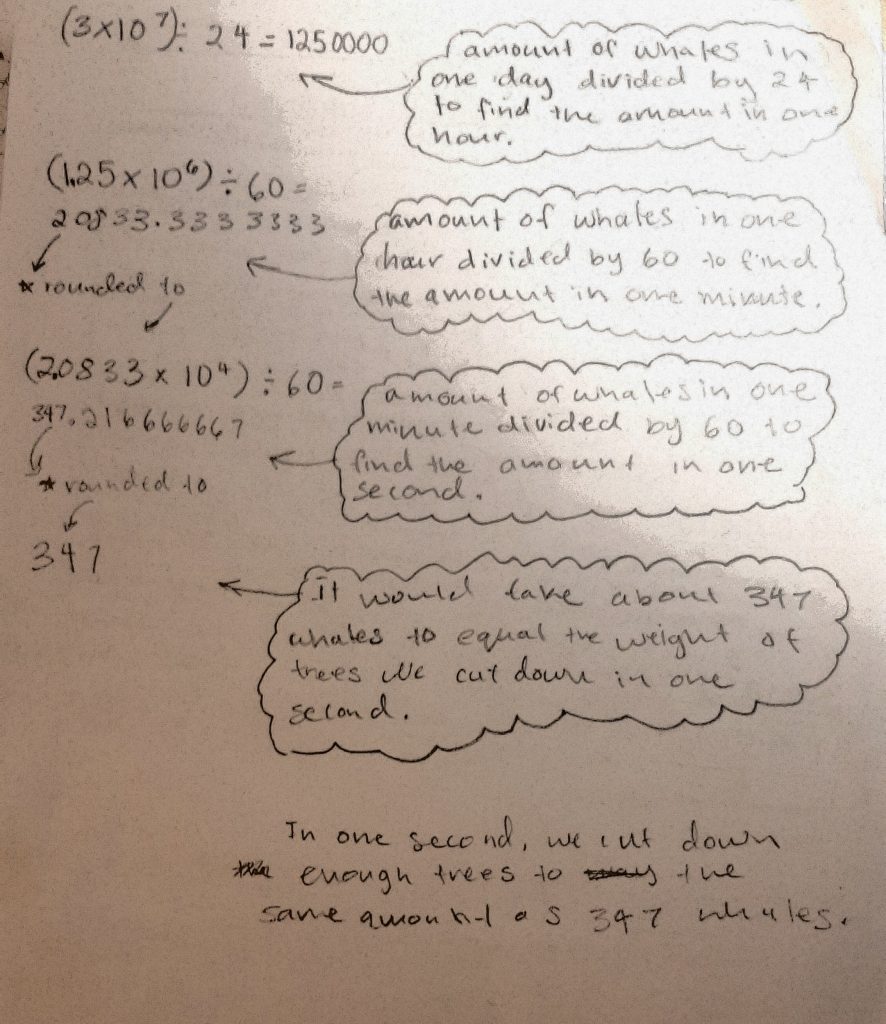 (3×10⁷) ÷ 24 = 1250000
amount of whales in
one day divided by 24
to find the amount in one
hour.
(1.25 × 10⁶) ÷ 60 =
20833.3333333
amount of whales in one
hour divided by 60 to find
the amount in one minute.
* rounded to
(2.0833 × 10⁴) ÷ 60 =
347.216666667
amount of whales in one
minute divided by 60 to
find the amount in one
second.
* rounded to
347
It would take about 347
whales to equal the weight of
trees we cut down in one
second.
In one second, we cut down
enough trees to the
same amount as 347 whales.